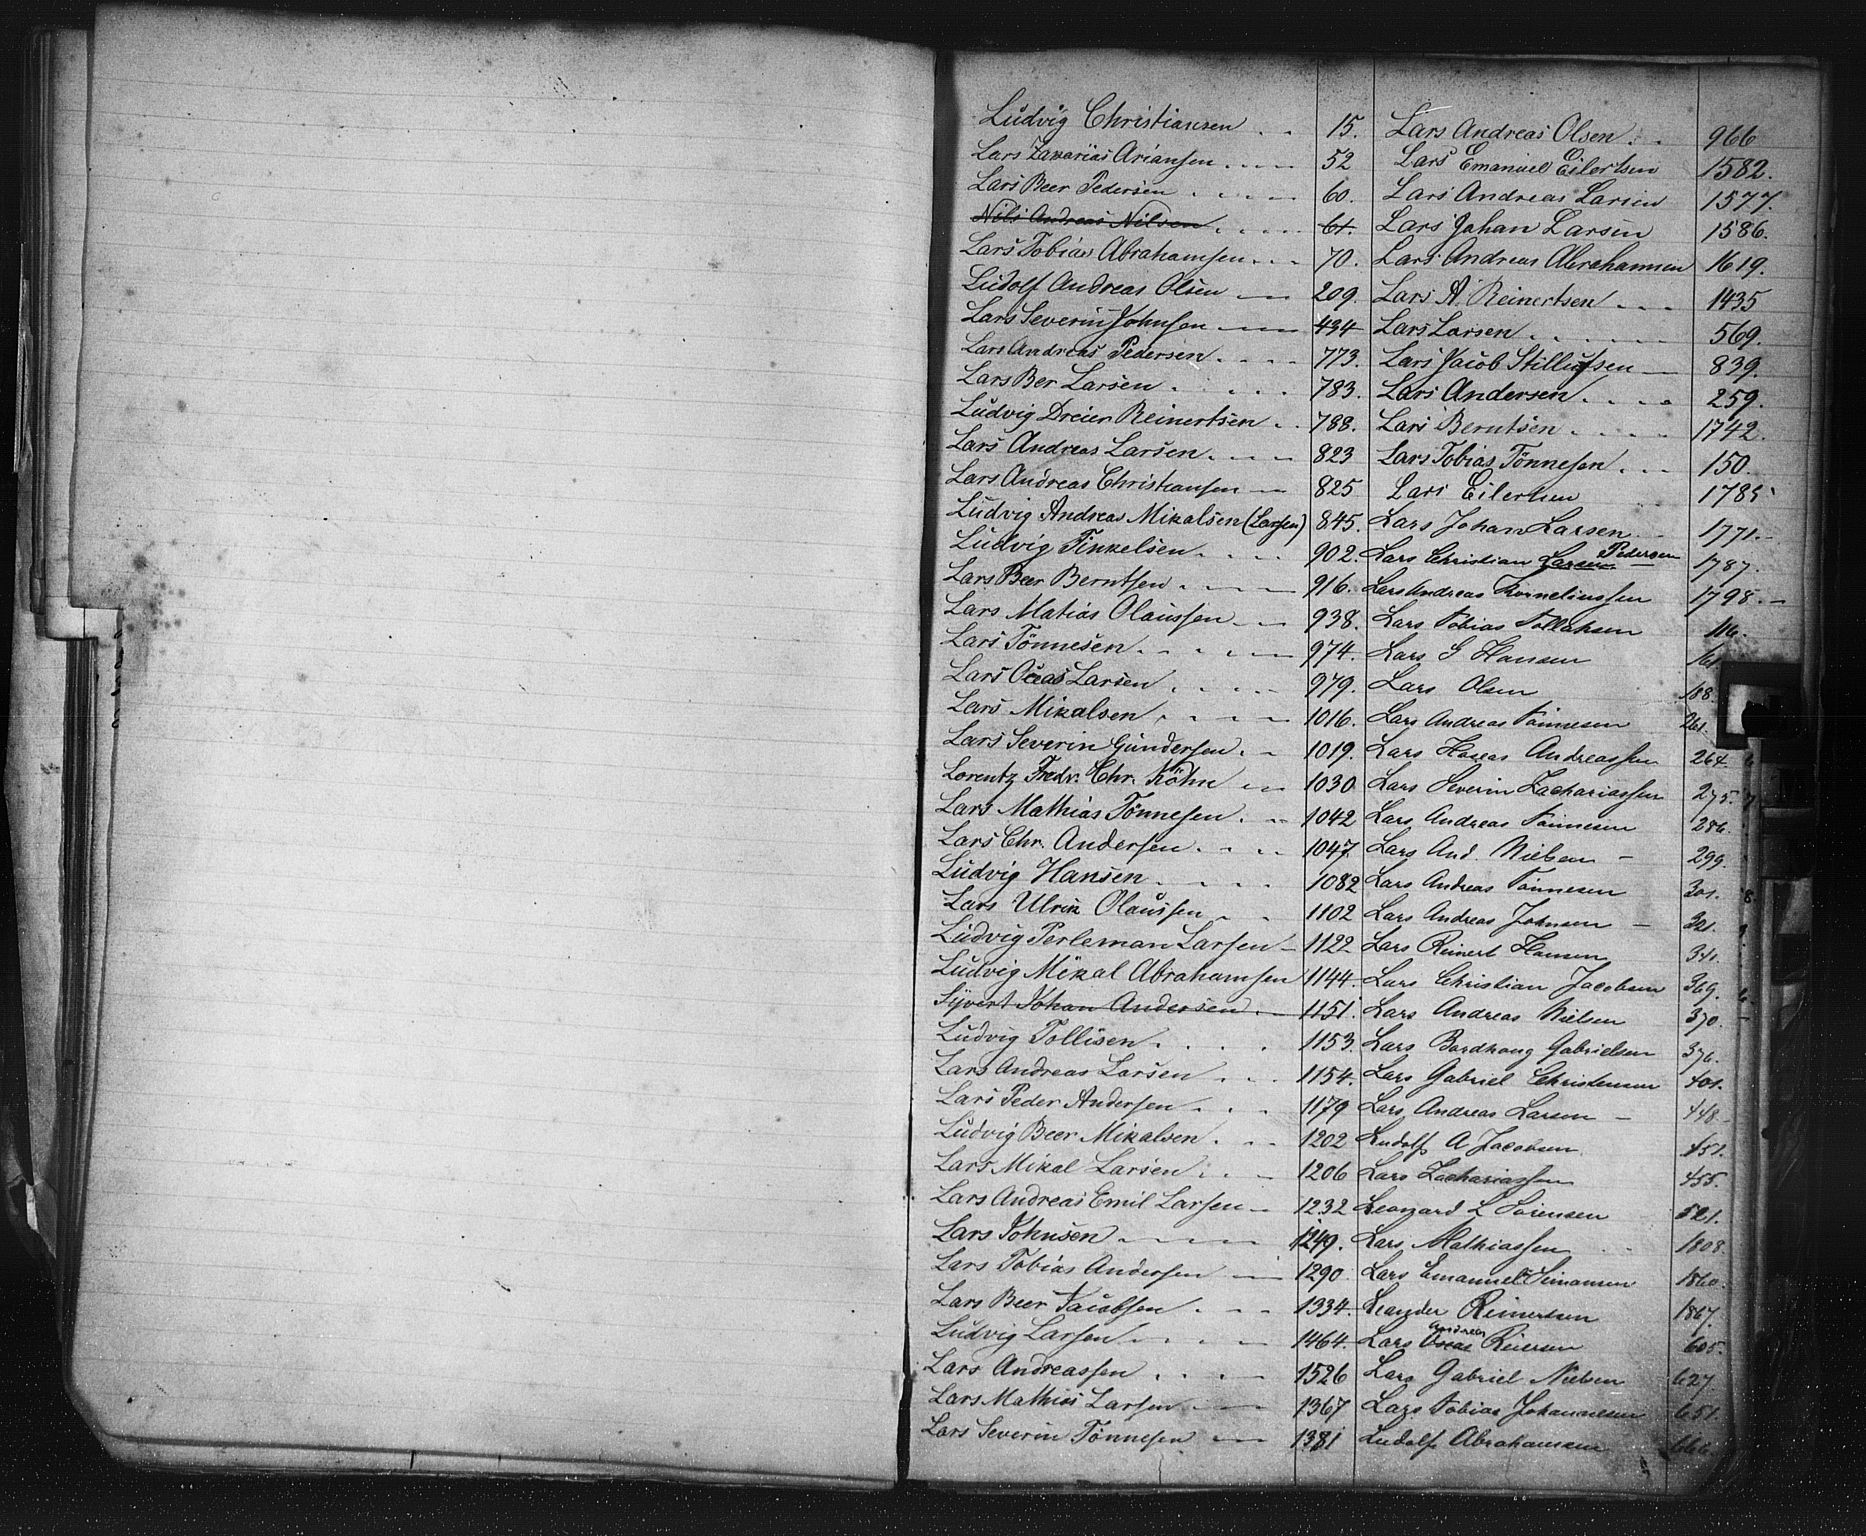 Ludvig Christiansen . . 15. Lars Andreas Olsen . . 966
Lars Zakarias Ariansen . . . . 52 Lars Emanuel Eilertsen 1582.
Lars Beer Pedersen . . . . 60. Lars Andreas Larsen 1577.
Nils Andreas Nilsen . . . . 61. Lars Johan Larsen 1586.
Lars Tobias Abrahamsen . . . 70. Lars Andreas Abrahamsen 1619.
Ludolf Andreas Olsen 209. Lars A. Reinertsen . . . 1435
Lars Severin Johnsen 434 Lars Larsen . . . . . 569.
Lars Andreas Pedersen . . . . 773. Lars Jacob Stillufsen 839.
Lars Ber Larsen . . . . 783. Lars Andersen . . . . 259.
Ludvig Dreier Reinertsen . . 788. Lars Berntsen . . . . 1742.
Lars Andreas Larsen . . . . 823 Lars Tobias Tönnesen . . . 150.
Lars Andreas Christiansen 825 Lars Eilertsen 1785
Ludvig Andreas Mikalsen (Larsen) 845. Lars Johan Larsen 1771.
Ludvig Tinkelsen . . . . 902. Lars Christian Larsen Pedersen 1787.
Lars Beer Berntsen . . . . 916. Lars Andreas Korneliussen 1798.
Lars Matias Olaussen 938. Lars Tobias Tollaksen 116.
Lars Tönnesen . . . . . 974. Lars G Hansen 161
Lars Oceas Larsen . . . . 979. Lars Olsen 188.
Lars Mikalsen . . . . . 1016. Lars Andreas Tönnesen 261.
Lars Severin Gundersen . . 1019. Lars Hoseas Andreassen 264.
Lorentz Fredr. Chr. Köhn 1030 Lars Severin Zachariassen 275.
Lars Mathias Tönnesen . . . 1042 Lars Andreas Tönnesen 286.
Lars Chr. Andersen . . . . 1047 Lars And. Nielsen 299.
Ludvig Hansen . . . . 1082 Lars Andreas Tönnesen 301.
Lars Ulrik Olaussen . . 1102 Lars Andreas Johnsen 321.
Ludvig Perleman Larsen 1122 Lars Reinert Hansen 341.
Ludvig Mikal Abrahamsen 1144. Lars Christian Jacobsen 369.
Syvert Johan Andersen . 1151. Lars Andreas Nielsen 370.
Ludvig Tollisen . . . . 1153. Lars Bordhoug Gabrielsen 376.
Lars Andreas Larsen . . . 1154. Lars Gabriel Christensen 401.
Lars Peder Andersen . . . 1179 Lars Andreas Larsen 448.
Ludvig Beer Mikalsen . . . 1202 Ludolf A Jacobsen 451.
Lars Mikal Larsen . . . 1206 Lars Zachariassen 455.
Lars Andreas Emil Larsen 1232 Leonard L Sörensen 521.
Lars Johnsen 1249. Lars Mathiassen 1808.
Lars Tobias Andersen 1290. Lars Emanuel Simonsen 1860.
Lars Beer Jacobsen . . . 1334. Leander Reinertsen 1867.
Ludvig Larsen . . . . 1464. Lars Oseas Andreas Reiersen 605.
Lars Andreassen . . . . 1526 Lars Gabriel Nielsen 627.
Lars Mathias Larsen 1367 Lars Tobias Johannesen 651.
Lars Severin Tönnesen 1381 Ludolf Abrahamsen 666